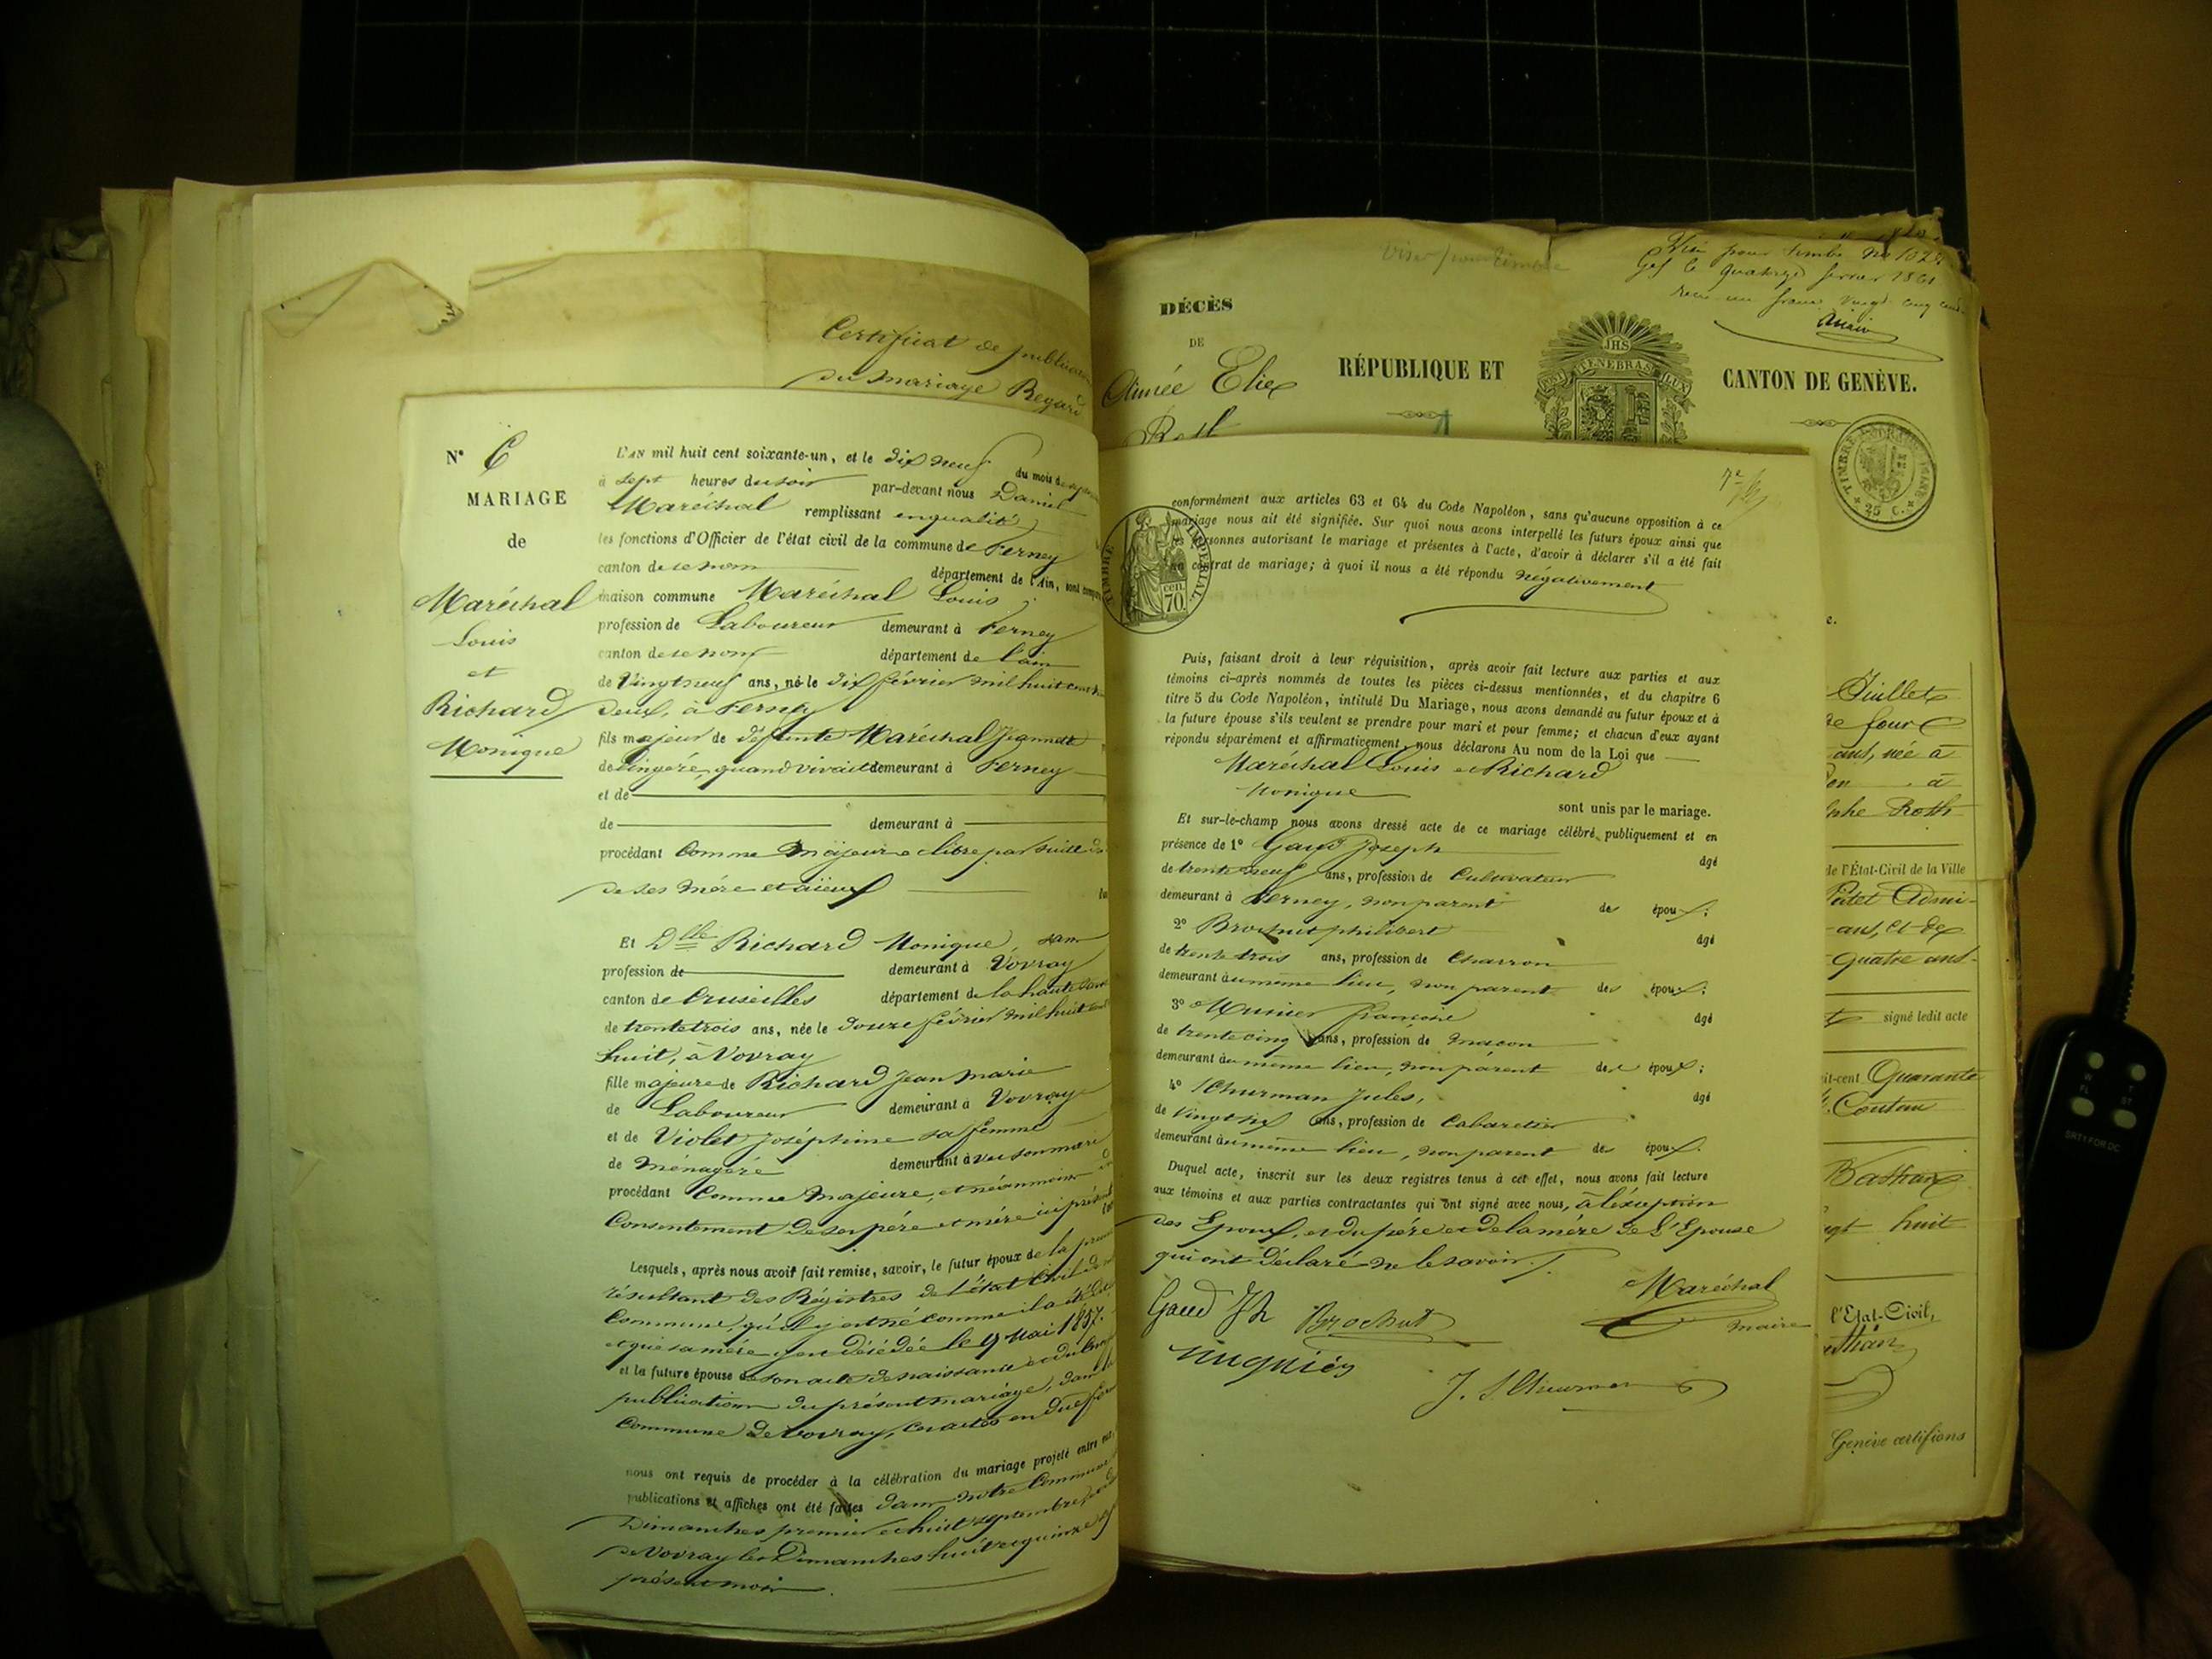 Certificat de publication
du mariage Regard
N° 6
MARIAGE
de
Maréchal
Louis
et
Richard
Monique
L'AN mil huit cent soixante-un, et le dix neuf du mois de
à sept heures du soir par-devant nous Daniel
Maréchal remplissant en qualité
les fonctions d'Officier de l'état civil de la commune de Ferney
canton de ce nom département de l'Ain, sont
maison commune Maréchal Louis
profession de Laboureur demeurant à Ferney
canton de ce nom département de l'ain
de Vingt neuf ans, né le dix février mil huit cent
deux, à Ferney
fils majeur de défunte Maréchal Jeannette
de Lingère, quand vivait demeurant à Ferney
et de
de demeurant à
procédant comme majeur et libre par suite du
de ses mère et aïeux
Et Dlle Richard Monique, sans
profession de demeurant à Vovray
canton de Cruseilles département de la haute
de trente trois ans, née le douze février mil huit cent
huit, à Vovray
fille majeure de Richard Jean marie
de Laboureur demeurant à Vovray
et de Violet Joséphine sa femme
de Ménagère demeurant à avec son mari
procédant comme majeure, et néanmoins du
Consentement de ses père et mère ici présents
Lesquels, après nous avoir fait remise, savoir, le futur époux de la preuve
résultant des Régistres de l'état Civil de
Commune, qu'il y est né comme il a été dit
et que sa mère y est décédée le 9 Mai 1857.
et la future épouse de son acte de naissance et du
publication du présent mariage, dans la
Commune de Vovray, ces actes en due forme
nous ont requis de procéder à la célébration du mariage projeté entre eux,
publications et affiches ont été faites dans notre Commune
Dimanches premier et huit septembre
de Vovray les Dimanches huit et quinze
présent mois.
Viser pour timbre
Visé pour timbre No 1022
Gex le quatorze février 1861
reçu un franc vingt cinq cent.
DÉCÈS
DE
Aimée Elise
Roth
RÉPUBLIQUE ET CANTON DE GENÈVE.
JHS
POST TENEBRAS LUX
25 C.
TIMBRE IMPÉRIAL
70 cen.
conformément aux articles 63 et 64 du Code Napoléon, sans qu'aucune opposition à ce
mariage nous ait été signifiée. Sur quoi nous avons interpellé les futurs époux ainsi que
les personnes autorisant le mariage et présentes à l'acte, d'avoir à déclarer s'il a été fait
un contrat de mariage; à quoi il nous a été répondu négativement
Puis, faisant droit à leur réquisition, après avoir fait lecture aux parties et aux
témoins ci-après nommés de toutes les pièces ci-dessus mentionnées, et du chapitre 6
titre 5 du Code Napoléon, intitulé Du Mariage, nous avons demandé au futur époux et à
la future épouse s'ils veulent se prendre pour mari et pour femme; et chacun d'eux ayant
répondu séparément et affirmativement, nous déclarons Au nom de la Loi que
Maréchal Louis et Richard
Monique
sont unis par le mariage.
Et sur-le-champ nous avons dressé acte de ce mariage célébré publiquement et en
présence de 1° Gaud Joseph âgé
de trente neuf ans, profession de Cultivateur
demeurant à Ferney, non parent des époux;
2° Brochut philibert âgé
de trente trois ans, profession de Charron
demeurant au même lieu, non parent des époux;
3° Munier françois âgé
de trente cinq ans, profession de maçon
demeurant au même lieu, non parent des époux;
4° Schurman Jules, âgé
de vingt six ans, profession de Cabaretier
demeurant au même lieu, non parent des époux.
Duquel acte, inscrit sur les deux registres tenus à cet effet, nous avons fait lecture
aux témoins et aux parties contractantes qui ont signé avec nous, à l'éxception
des Epoux, et du père et de la mère de l'Epouse
qui ont déclaré ne le savoir.
Maréchal
maire
Gaud Jh Brochut
J. Schurman
Juillet
de four
ans, née à
en à
Roth
de l'État-Civil de la Ville
ans, et de
quatre ans
signé ledit acte
it-cent Quarante
Coutau
huit
l'Etat-Civil,
Genève certifions